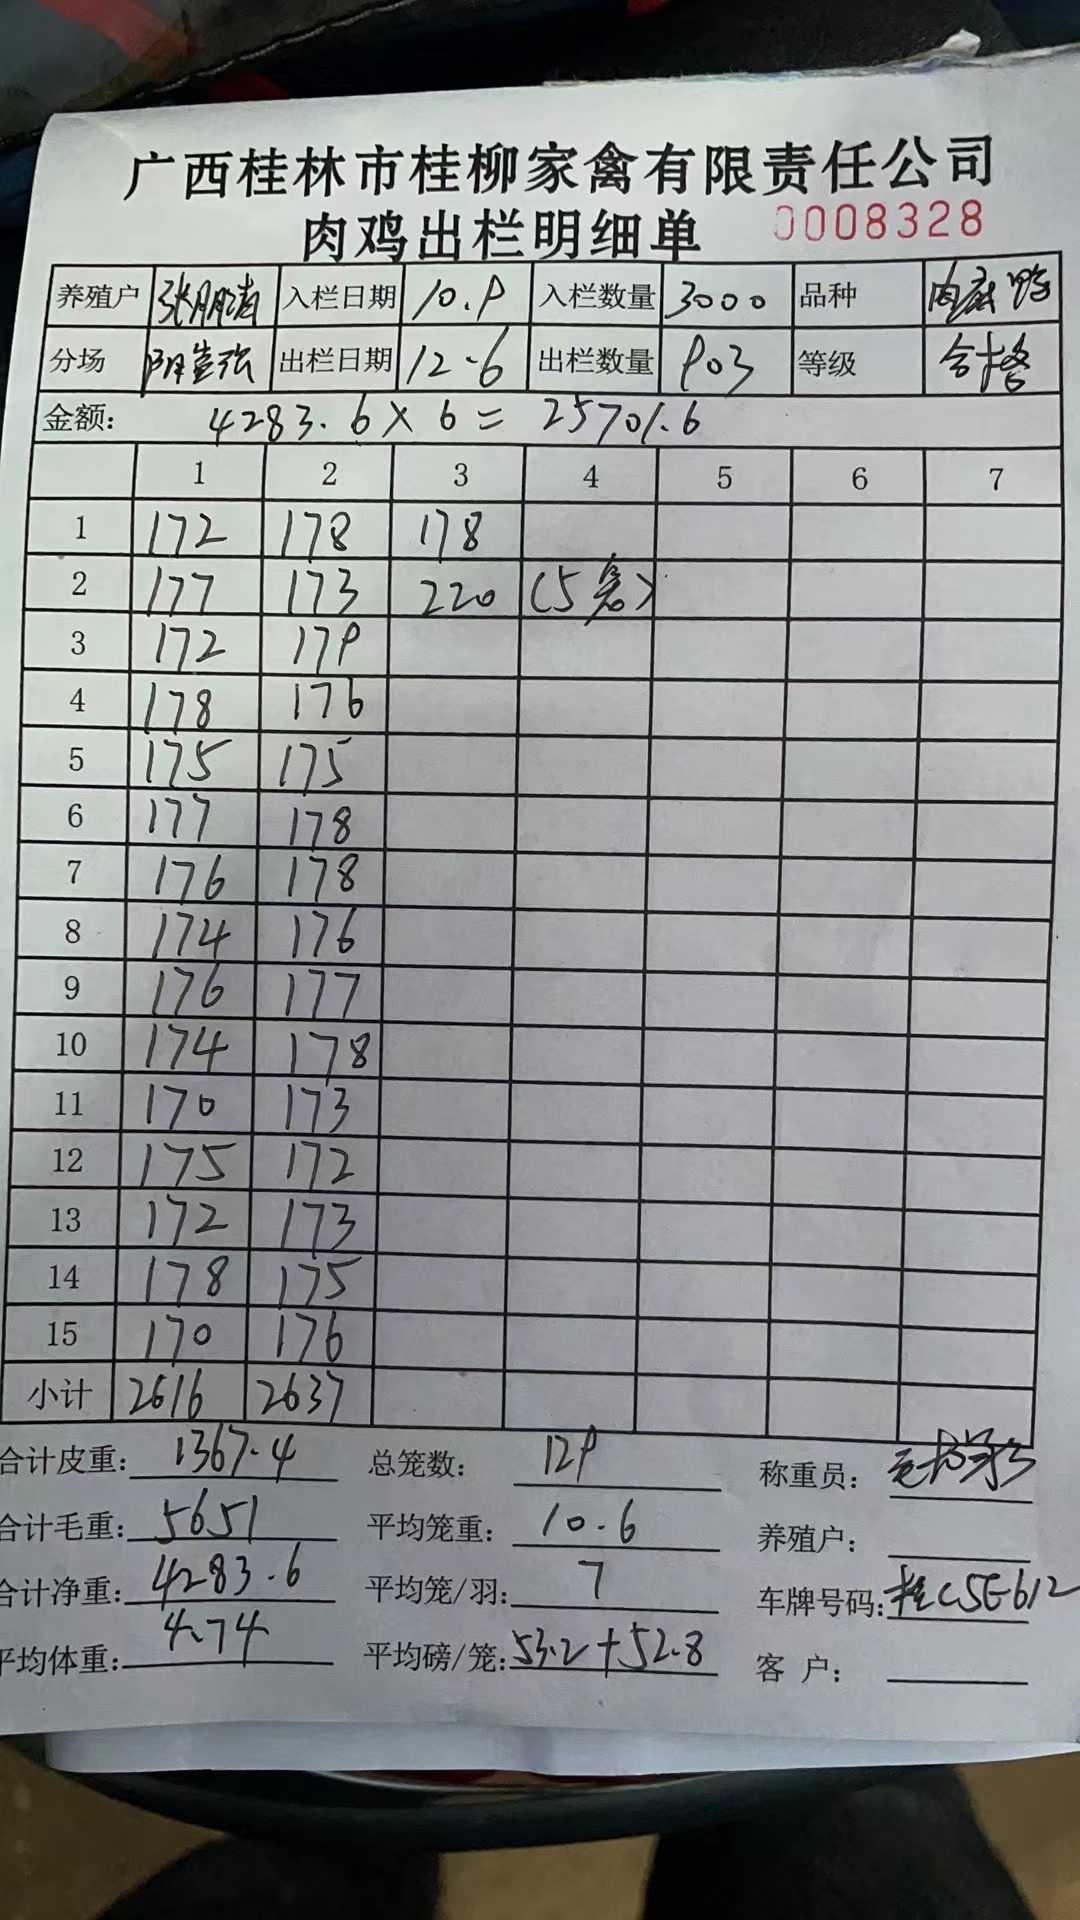 广西桂林市桂柳家禽有限责任公司
肉鸡出栏明细单 0008328
养殖户 入栏日期 10.9 入栏数量 3000 品种
分场 出栏日期 12-6 出栏数量 903 等级 合格
金额： 4283.6×6=25701.6
1 2 3 4 5 6 7
1 172 178 178
2 177 173 220 (5笼)
3 172 179
4 178 176
5 175 175
6 177 178
7 176 178
8 174 176
9 176 177
10 174 178
11 170 173
12 175 172
13 172 173
14 178 175
15 170 176
小计 2616 2637
合计皮重： 1367.4 总笼数： 129 称重员：
合计毛重： 5651 平均笼重： 10.6 养殖户：
合计净重： 4283.6 平均笼/羽： 7 车牌号码： 桂C5E612
平均体重： 4.74 平均磅/笼： 53.2+52.8 客 户：